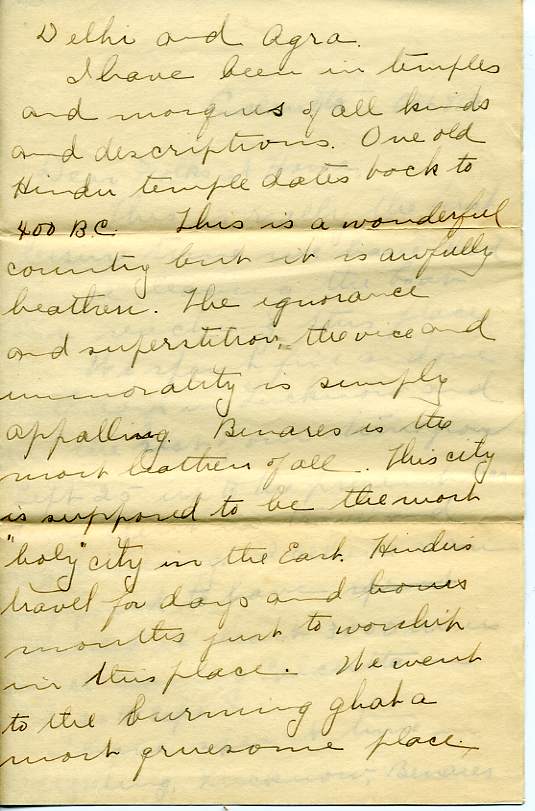 Delhi and Agra.
I have been in temples
and mosques of all kinds
and descriptions. One old
Hindu temple dates back to
400 B.C. This is a wonderful
country but it is awfully
heathen. The ignorance
and superstition, the vice and
immorality is simply
appalling. Benares is the
most heathen of all. This city
is supposed to be the most
"holy" city in the East. Hindus
travel for days and hours
months just to worship
in this place. We went
to the burning ghat a
most gruesome place.
Lucknow, Benares